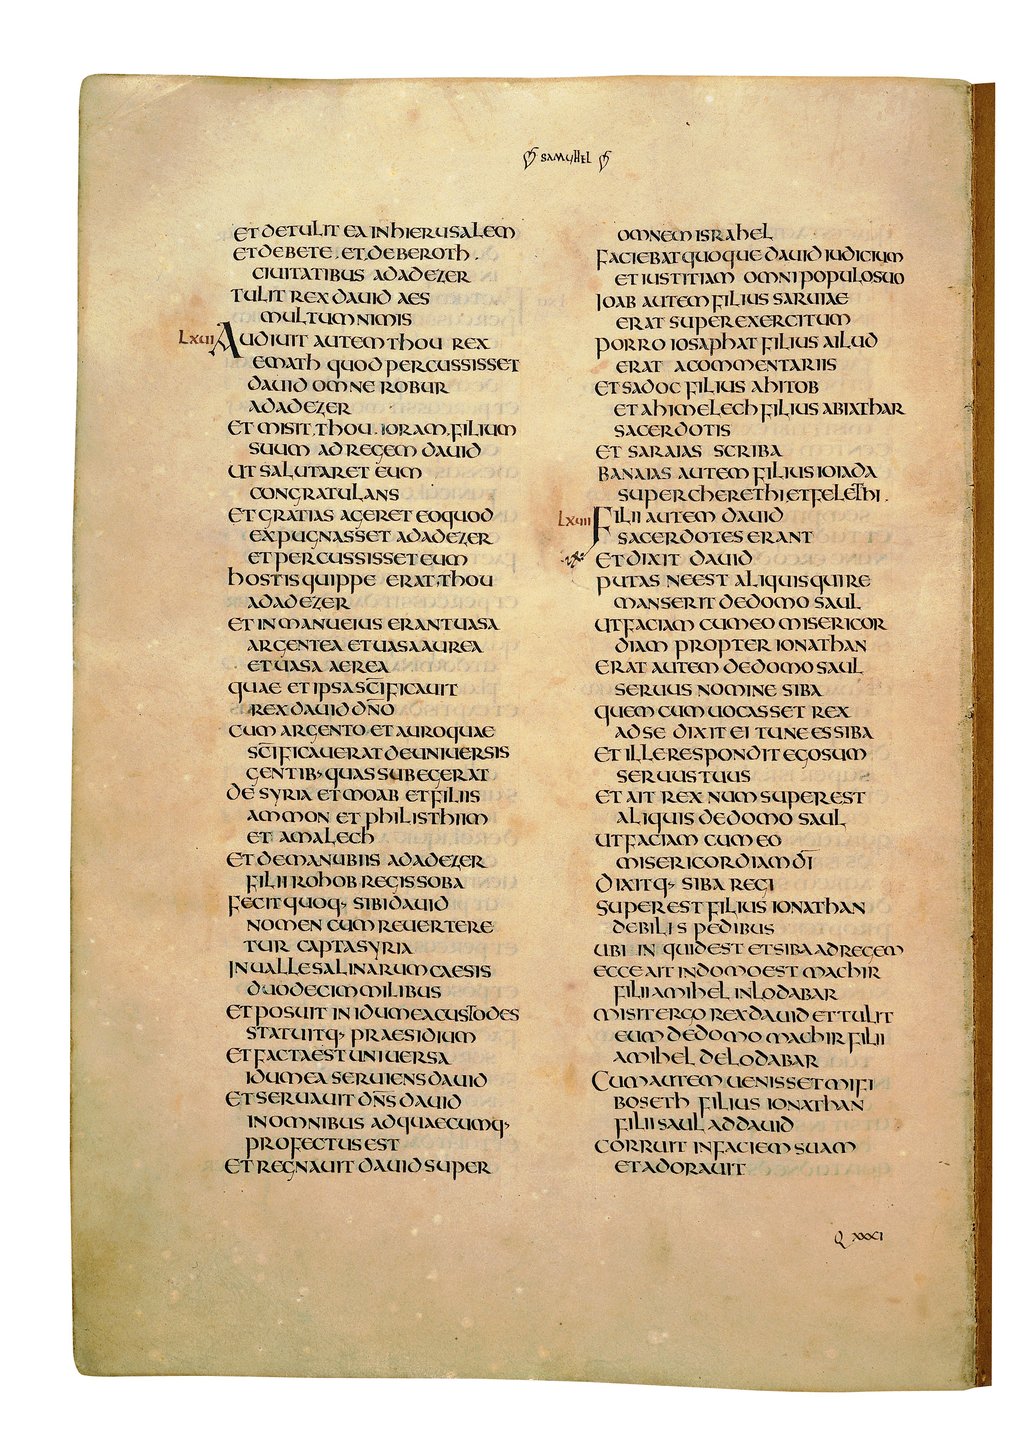 SAMUHEL
ET DETULIT EA IN HIERUSALEM
ET DE BETE . ET DE BEROTH .
CIUITATIBUS ADADEZER
TULIT REX DAUID AES
MULTUM NIMIS
LXVII AUDIUIT AUTEM THOU REX
EMATH QUOD PERCUSSISSET
DAUID OMNE ROBUR
ADADEZER
ET MISIT . THOU . IORAM . FILIUM
SUUM AD REGEM DAUID
UT SALUTARET EUM
CONGRATULANS
ET GRATIAS AGERET EO QUOD
EXPUGNASSET ADADEZER
ET PERCUSSISSET EUM
HOSTIS QUIPPE ERAT . THOU
ADADEZER
ET IN MANU EIUS ERANT UASA
ARGENTEA ET UASA AUREA
ET UASA AEREA
QUAE ET IPSA SC̅IFICAUIT
REX DAUID DN̅O
CUM ARGENTO ET AURO QUAE
SC̅IFICAUERAT DE UNIUERSIS
GENTIB; QUAS SUBEGERAT
DE SYRIA ET MOAB ET FILIIS
AMMON ET PHILISTHIIM
ET AMALECH
ET DE MANUBIIS ADADEZER
FILII ROHOB REGIS SOBA
FECIT QUOQ; SIBI DAUID
NOMEN CUM REUERTERE
TUR CAPTA SYRIA
IN UALLE SALINARUM CAESIS
DUODECIM MILIBUS
ET POSUIT IN IDUMEA CUSTODES
STATUITQ; PRAESIDIUM
ET FACTA EST UNIUERSA
IDUMEA SERUIENS DAUID
ET SERUAUIT DN̅S DAUID
IN OMNIBUS AD QUAECUMQ;
PROFECTUS EST
ET REGNAUIT DAUID SUPER
OMNEM ISRAHEL
FACIEBAT QUOQUE DAUID IUDICIUM
ET IUSTITIAM OMNI POPULO SUO
IOAB AUTEM FILIUS SARUIAE
ERAT SUPER EXERCITUM
PORRO IOSAPHAT FILIUS AILUD
ERAT A COMMENTARIIS
ET SADOC FILIUS AHITOB
ET AHIMELECH FILIUS ABIATHAR
SACERDOTIS
ET SARAIAS SCRIBA
BANAIAS AUTEM FILIUS IOIADA
SUPER CHERETHI ET FELETHI .
LXVIII FILII AUTEM DAUID
SACERDOTES ERANT
ET DIXIT DAUID
PUTAS NE EST ALIQUIS QUI RE
MANSERIT DE DOMO SAUL
UT FACIAM CUM EO MISERICOR
DIAM PROPTER IONATHAN
ERAT AUTEM DE DOMO SAUL
SERUUS NOMINE SIBA
QUEM CUM UOCASSET REX
AD SE DIXIT EI TU NE ES SIBA
ET ILLE RESPONDIT EGO SUM
SERUUS TUUS
ET AIT REX NUM SUPEREST
ALIQUIS DE DOMO SAUL
UT FACIAM CUM EO
MISERICORDIAM DI̅
DIXITQ; SIBA REGI
SUPEREST FILIUS IONATHAN
DEBILIS PEDIBUS
UBI IN QUID EST ET SIBA AD REGEM
ECCE AIT IN DOMO EST MACHIR
FILII AMIHEL IN LODABAR
MISIT ERGO REX DAUID ET TULIT
EUM DE DOMO MACHIR FILII
AMIHEL DE LODABAR
CUM AUTEM UENISSET MIFI
BOSETH FILIUS IONATHAN
FILII SAUL AD DAUID
CORRUIT IN FACIEM SUAM
ET ADORAUIT
Q XXXCI